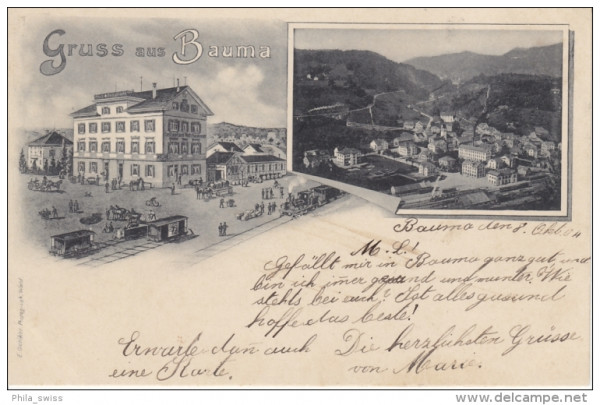 Gruss aus Bauma
Bauma den 8. Okt. 04
M. L.!
Gefällt mir in Bauma ganz gut, und
bin ich im̄er gesund und munter. Wie
stehts bei euch? Ist alles gesund
hoffe das beste!
Erwarte dañ auch
eine Karte.
Die herzlichsten Grüsse
von Marie.
Phila_swiss
delcampe.net